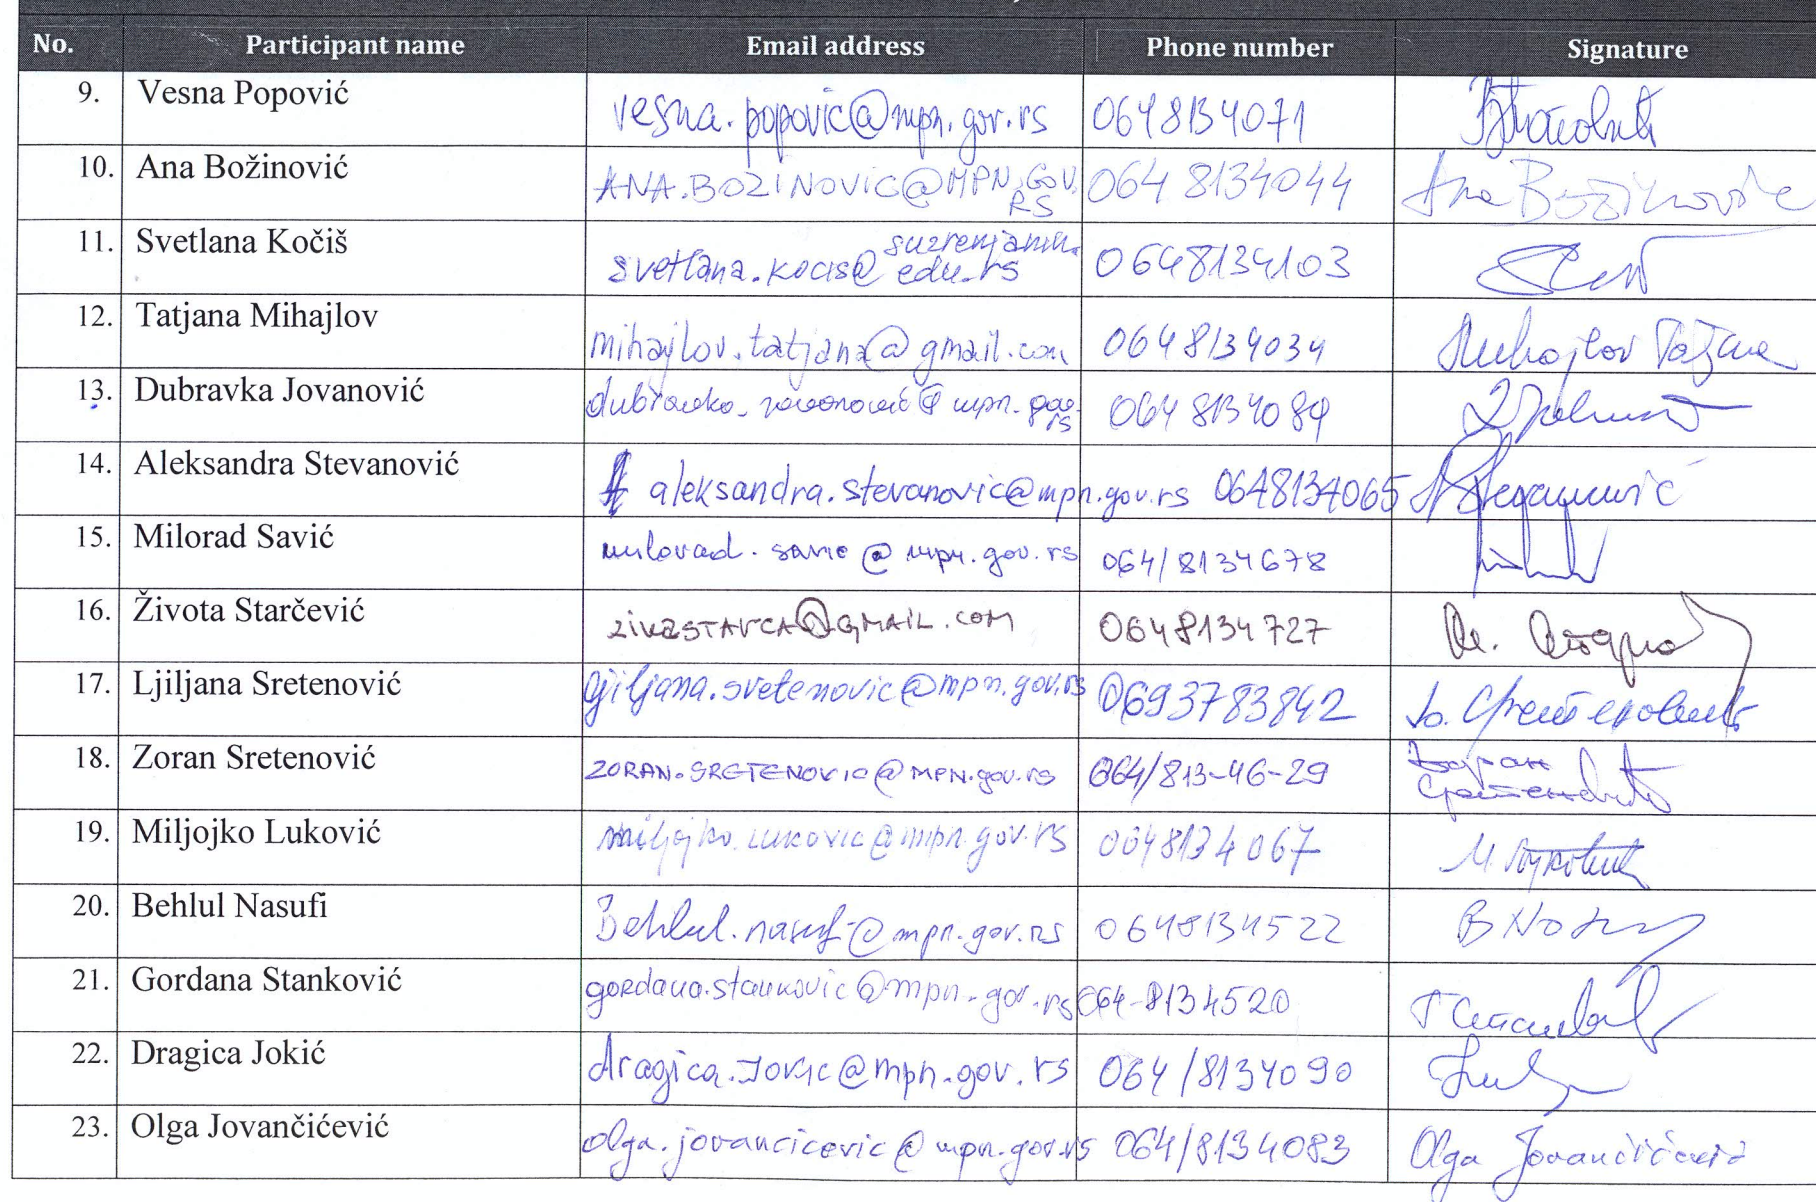 No. Participant name Email address Phone number Signature
9. Vesna Popović vesna.popovic@mpn.gov.rs 0648134071
10. Ana Božinović ANA.BOZINOVIC@MPN.GOV.RS 064 8134044 Ana Božinović
11. Svetlana Kočiš svetlana.kocis@ edu.rs 0648134103
12. Tatjana Mihajlov mihajlov.tatjana@gmail.com 0648134034 Mihajlov Tatjana
13. Dubravka Jovanović dubravka.jovanovic@mpn.gov.rs 064 8134084
14. Aleksandra Stevanović aleksandra.stevanovic@mpn.gov.rs 0648134065
15. Milorad Savić milorad.savic@mpn.gov.rs 064/8134678
16. Života Starčević ZIVASTARCA@GMAIL.COM 0648134727
17. Ljiljana Sretenović ljiljana.sretenovic@mpn.gov.rs 0693783842 Љ. Сретеновић
18. Zoran Sretenović ZORAN.SRETENOVIC@MPN.gov.rs 064/813-46-29 Зоран
Сретеновић
19. Miljojko Luković miljojko.lukovic@mpn.gov.rs 0648134067 М Луковић
20. Behlul Nasufi Behlul.nasufi@mpn.gov.rs 0648134522
21. Gordana Stanković gordana.stankovic@mpn.gov.rs 064-8134520
22. Dragica Jokić dragica.Jokic@mpn.gov.rs 064/8134090
23. Olga Jovančićević olga.jovancicevic@mpn.gov.rs 064/8134083 Olga Jovančićević